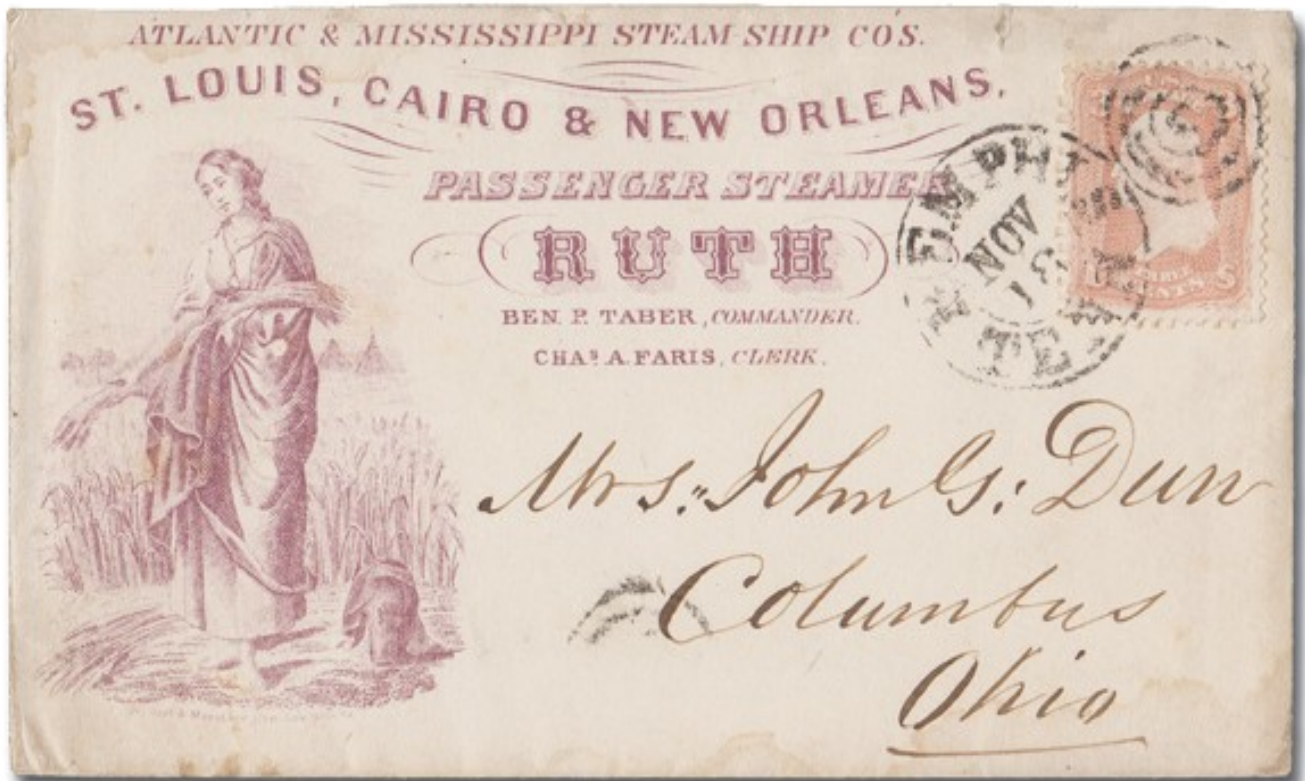 ATLANTIC & MISSISSIPPI STEAM SHIP CO'S.
ST. LOUIS, CAIRO & NEW ORLEANS.
PASSENGER STEAMER
RUTH
BEN. P. TABER, COMMANDER.
CHAS A. FARIS, CLERK.
MEMPHIS
NOV
13
TEN
CENTS
Mrs. John G: Dun
Columbus
Ohio